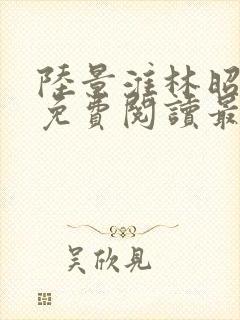 陸景淮林昭
免費閱讀最
吳欣見